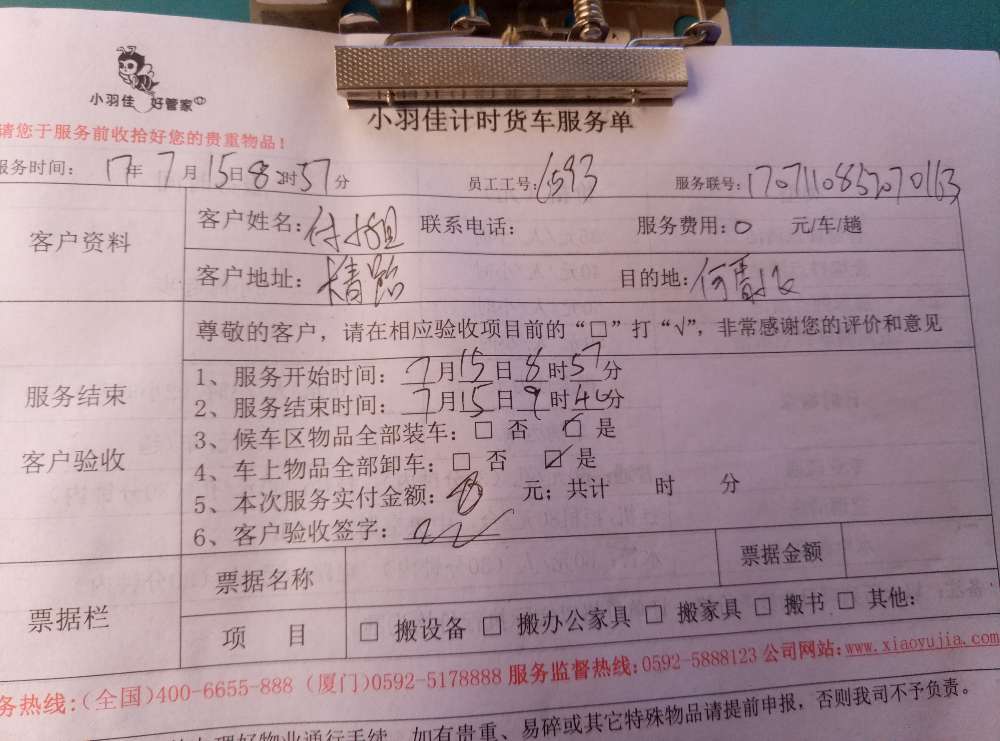 小羽佳 好管家
小羽佳计时货车服务单
请您于服务前收拾好您的贵重物品！
服务时间：17年7月15日8时57分 员工工号：6593 服务联号：
客户资料
客户姓名：付小姐 联系电话： 服务费用：0 元/车/趟
客户地址： 目的地：
尊敬的客户，请在相应验收项目前的“□”打“√”，非常感谢您的评价和意见
服务结束
客户验收
1、服务开始时间：7月15日8时57分
2、服务结束时间：7月15日9时40分
3、候车区物品全部装车：□ 否 ☑ 是
4、车上物品全部卸车：□ 否 ☑ 是
5、本次服务实付金额： 元；共计 时 分
6、客户验收签字：
票据栏
票据名称 票据金额
项 目 □ 搬设备 □ 搬办公家具 □ 搬家具 □ 搬书 □ 其他：
务热线：（全国）400-6655-888（厦门）0592-5178888 服务监督热线：0592-5888123 公司网站：www.xiaoyujia.com
办理好物业通行手续，如有贵重、易碎或其它特殊物品请提前申报，否则我司不予负责。